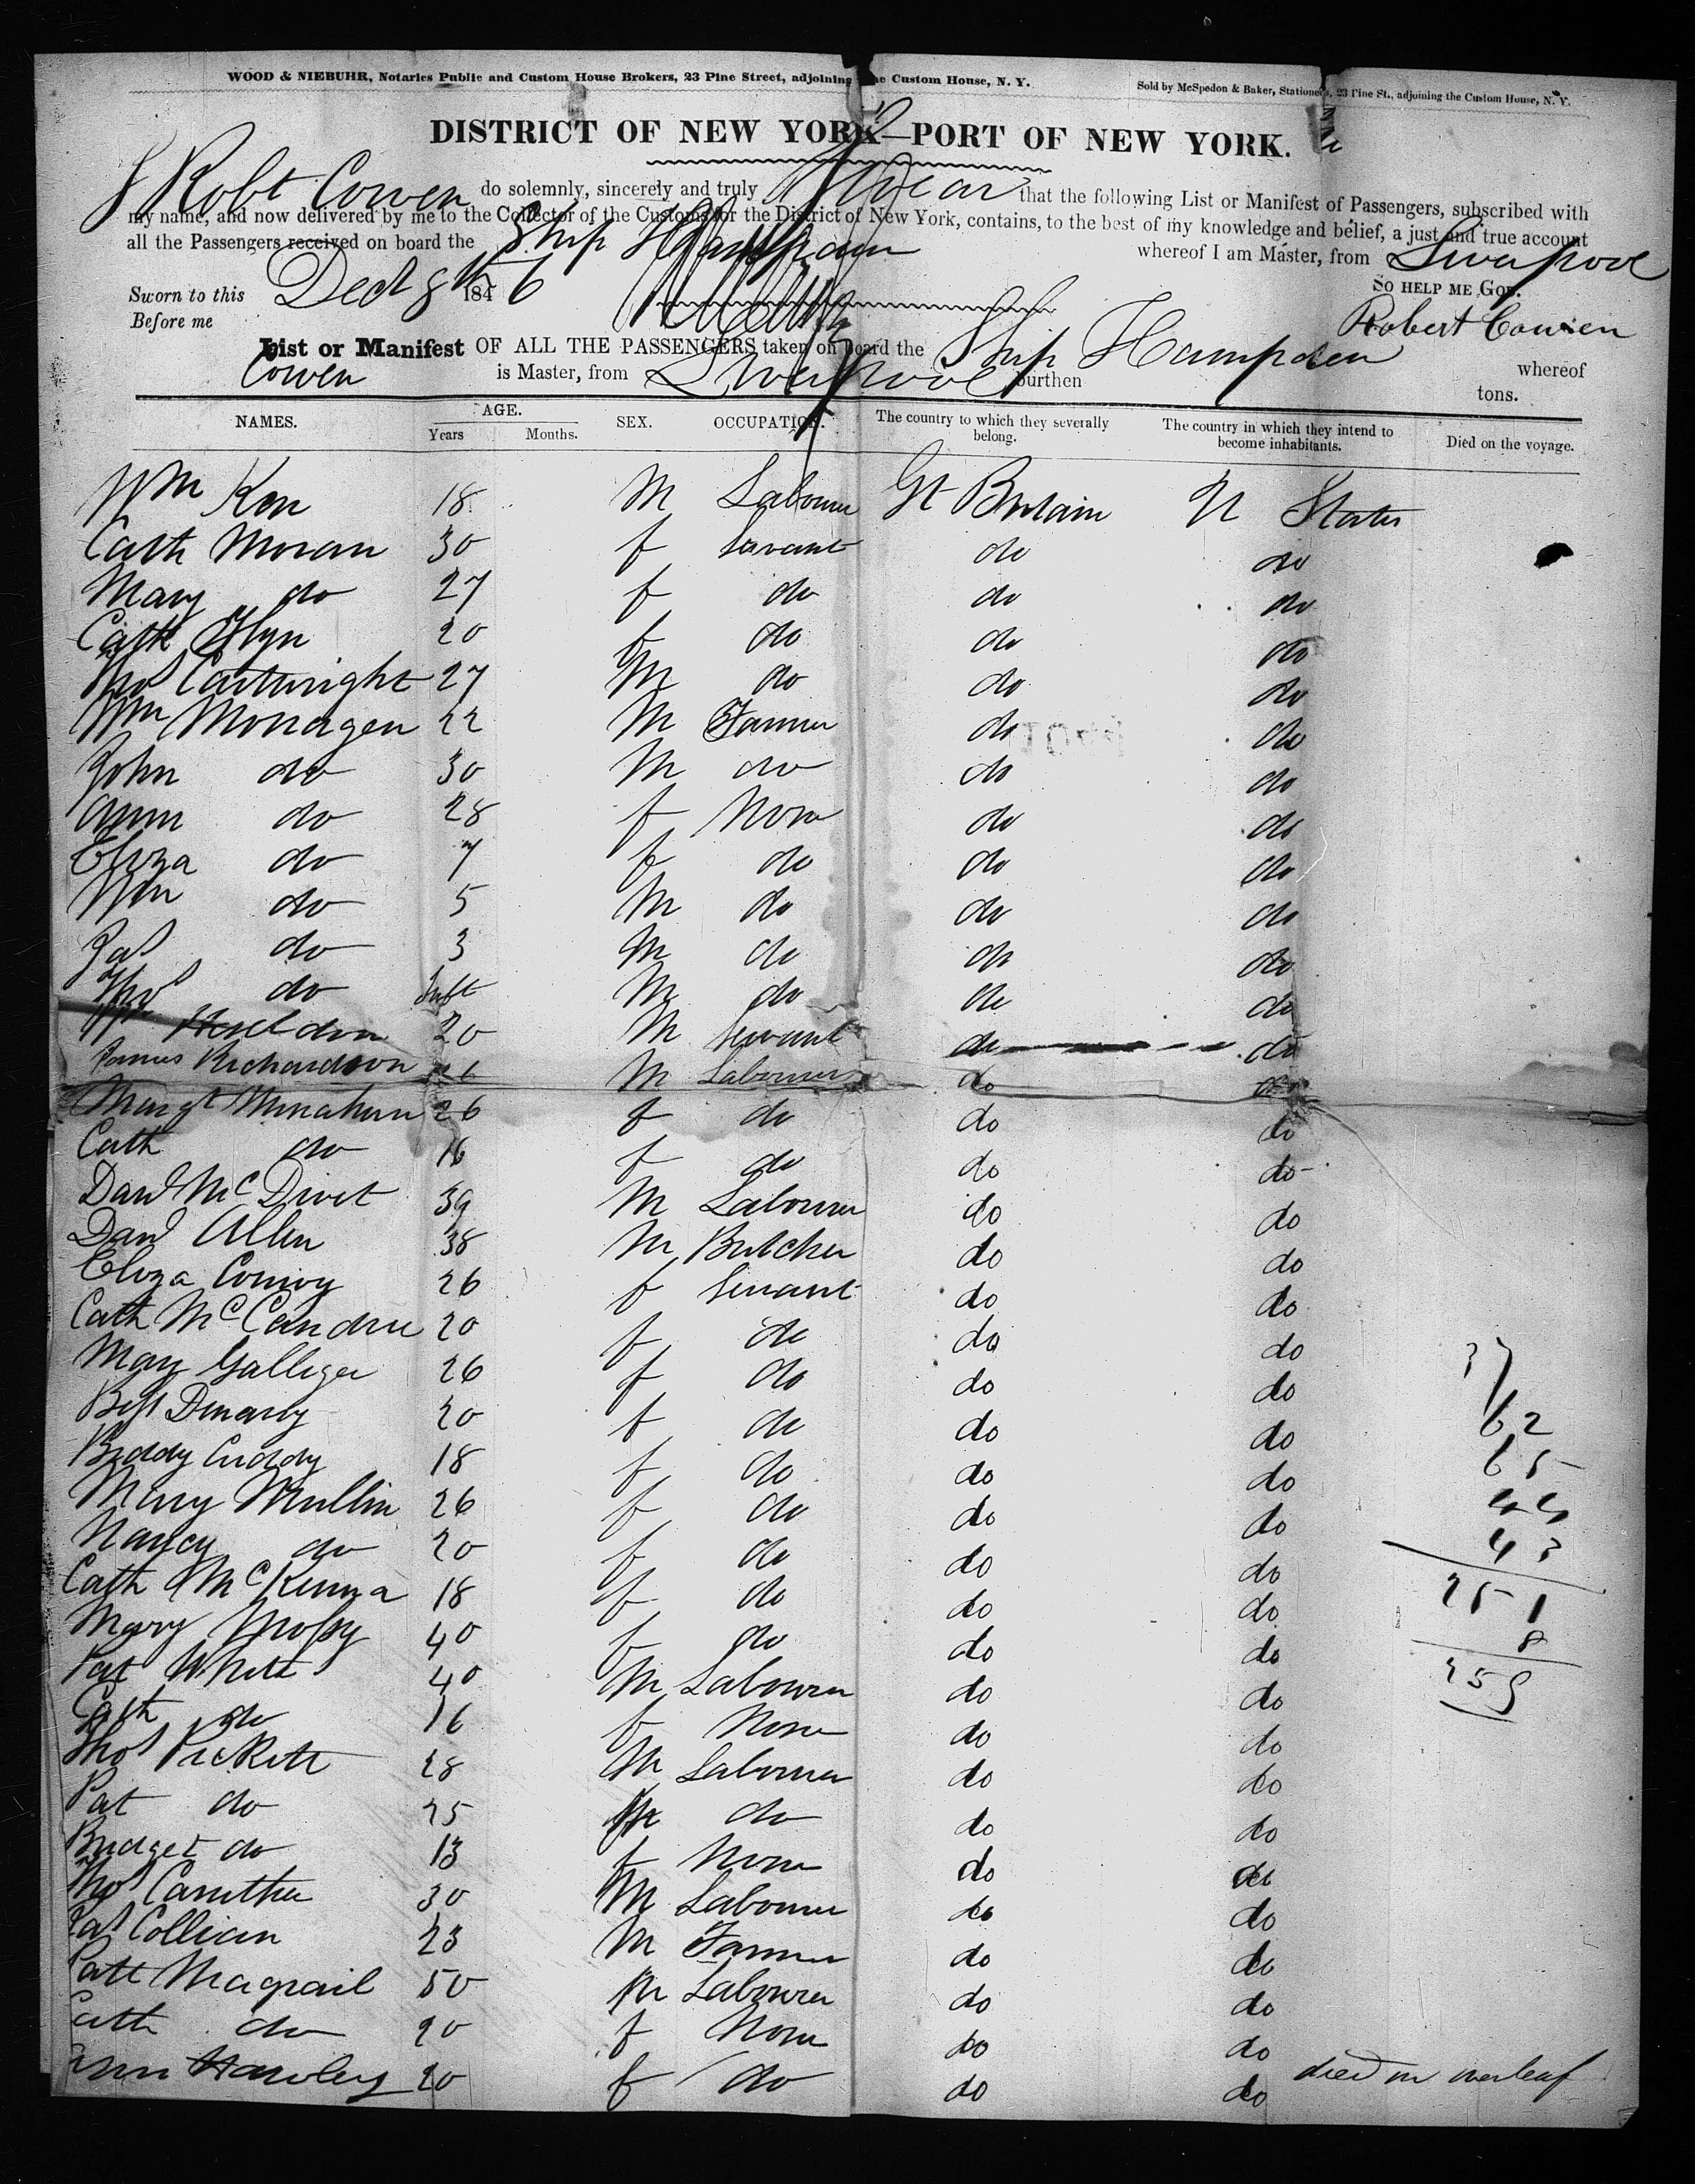 WOOD & NIEBUHR, Notaries Public and Custom House Brokers, 23 Pine Street, adjoining the Custom House, N. Y.
Sold by McSpedon & Baker, Stationers, 23 Pine St., adjoining the Custom House, N. Y.
DISTRICT OF NEW YORK—PORT OF NEW YORK.
I Robt Cowen do solemnly, sincerely and truly Swear that the following List or Manifest of Passengers, subscribed with
my name, and now delivered by me to the Collector of the Customs for the District of New York, contains, to the best of my knowledge and belief, a just and true account
all the Passengers received on board the Ship Hampden whereof I am Master, from Liverpool
Sworn to this Dec 8th 1846 SO HELP ME GOD.
Before me Robert Cowen
List or Manifest OF ALL THE PASSENGERS taken on board the Ship Hampden whereof
Cowen is Master, from Liverpool burthen tons.
NAMES. AGE. Years Months. SEX. OCCUPATION. The country to which they severally belong. The country in which they intend to become inhabitants. Died on the voyage.
Wm Ken 18 M Labourer Gt Britain U States
Cath Moran 30 f Servant do do
Mary do 27 f do do do
Cath Flyn 20 f do do do
Thos Cartwright 27 M do do do
Wm Monagen 22 M Farmer do do
John do 30 M do do do
Ann do 28 f None do do
Eliza do 7 f do do do
Wm do 5 M do do do
Jas do 3 M do do do
Thos do Inft M do do do
Heseldon 20 M Servant do do
James Richardson M Labourer do do
Margt Monahan 26 f do do do
Cath do 16 f do do do
Danl McDivet 39 M Labourer do do
Danl Allen 38 M Butcher do do
Eliza Conroy 26 f Servant do do
Cath McCandrie 20 f do do do
Mary Galliger 26 f do do do
20 f do do do
Biddy Cuddy 18 f do do do
Mary Mullin 26 f do do do
Nancy do 20 f do do do
Cath McKenna 18 f do do do
Mary 40 f do do do
Pat White 40 M Labourer do do
Cath do 16 f None do do
Thos Pickett 28 M Labourer do do
Pat do 25 M do do do
Bridget do 13 f None do do
Thos Caruther 30 M Labourer do do
Jas Collican 23 M Farmer do do
Patt Magrail 50 M Labourer do do
Cath do 20 f None do do
Ann Hawley 20 f do do do died on overleaf
37
62
65
44
43
251
8
259